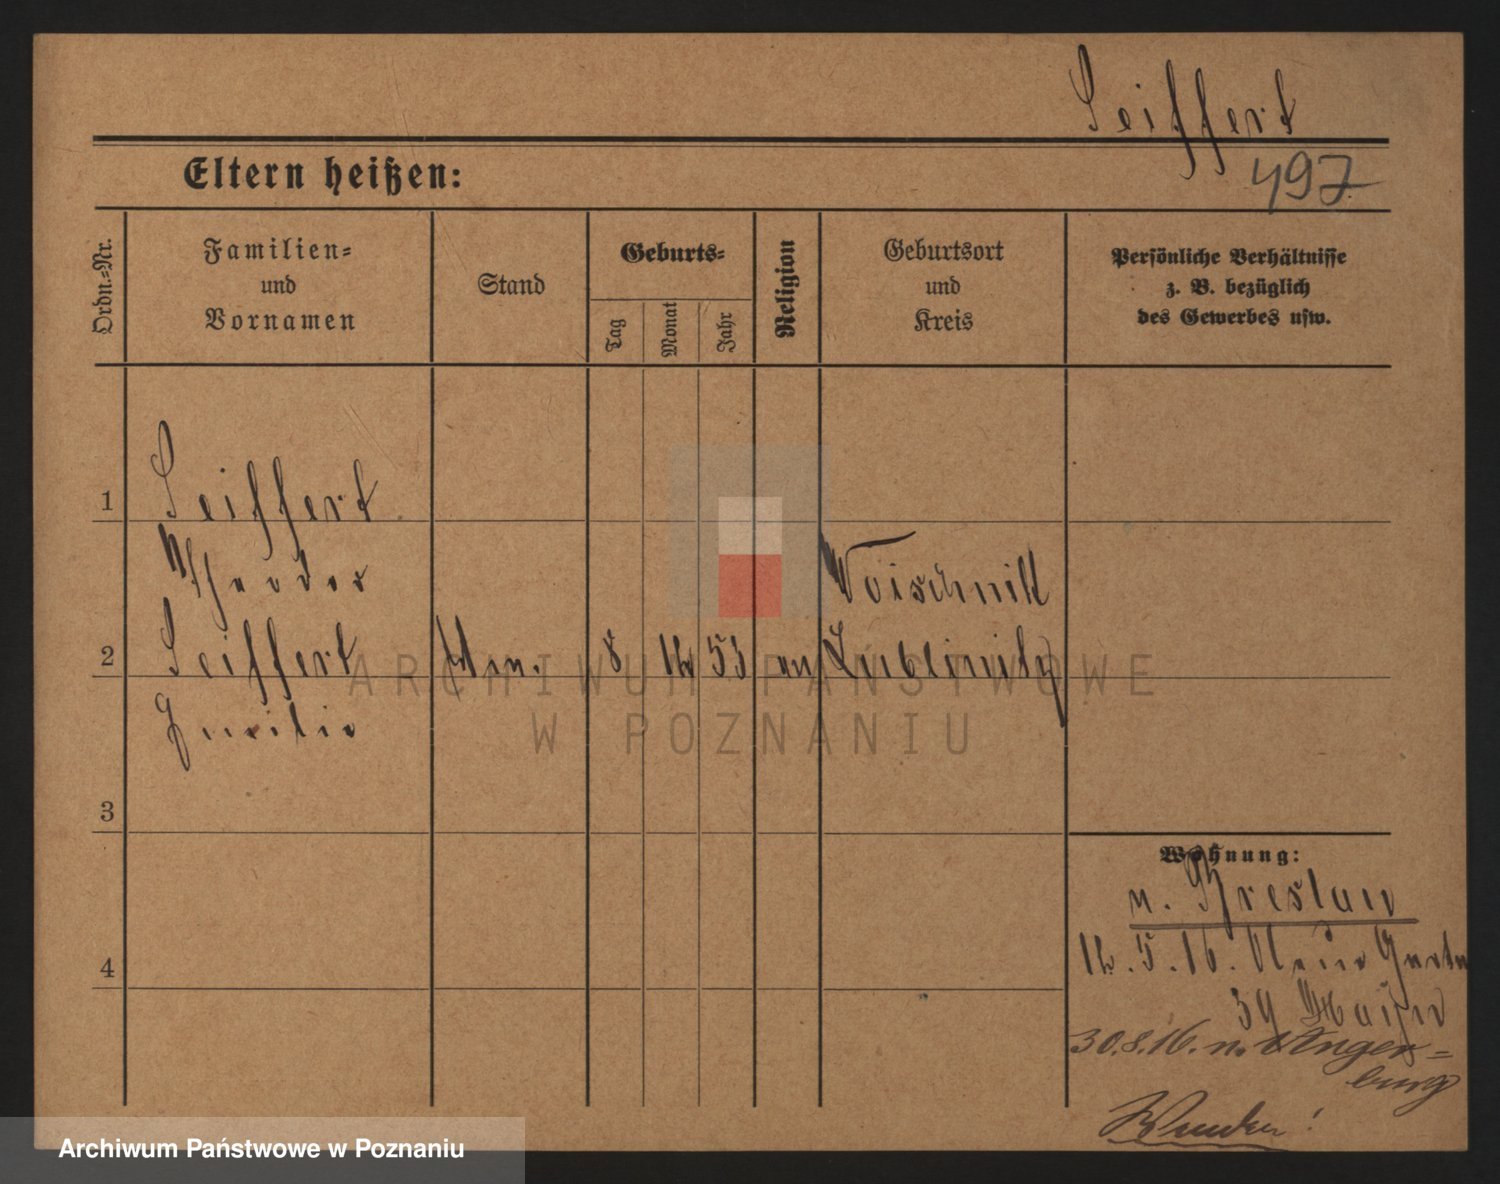 Seiffert
497
Eltern heißen:
Ordn.-Nr.
Familien-
und
Vornamen
Stand
Geburts-
Tag
Monat
Jahr
Religion
Geburtsort
und
Kreis
Persönliche Verhältnisse
z. B. bezüglich
des Gewerbes usw.
1
Seiffert
Theodor
Woischnik
2
Seiffert
8
12
53
Lublinitz
Emilie
ARCHIWUM PAŃSTWOWE
W POZNANIU
3
Wohnung:
n. Breslau
12. 5. 16.
4
39
30.8.16. n. Anger-
burg
Archiwum Państwowe w Poznaniu